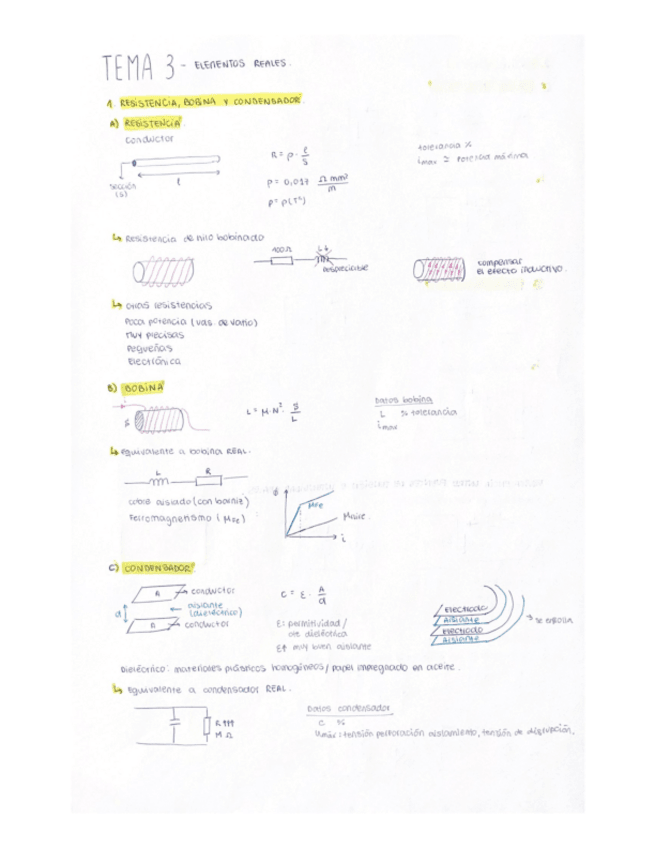 TEMA 3 - ELEMENTOS REALES.
1. RESISTENCIA, BOBINA Y CONDENSADOR.
A) RESISTENCIA.
Conductor
sección
(s)
l
R = ρ · l/s
ρ = 0,017 Ω mm²/m
ρ = ρ(Tª)
tolerancia %
imax ≡ potencia máxima
↳ Resistencia de hilo bobinado
100Ω
despreciable
compensar
el efecto inductivo.
↳ Otras resistencias
Poca potencia (vas. de vatio)
Muy precisas
Pequeñas
Electrónica
B) BOBINA
i
s
L = μ·N² · S/L
Datos bobina
L % tolerancia
imax
↳ Equivalente a bobina REAL.
L R
cobre aislado (con barniz)
Ferromagnetismo (μFe)
μFe
μaire
i
C) CONDENSADOR
A → conductor
aislante
(dieléctrico)
d
conductor
C = ε · A/d
ε = permitividad /
cte dieléctrica
ε↑ muy buen aislante
Electrodo
Aislante
Electrodo
Aislante
→ se enrolla
Dieléctrico: materiales plásticos homogéneos / papel impregnado en aceite.
↳ Equivalente a condensador REAL.
R↑↑↑
MΩ
Datos condensador
C %
Umáx: tensión perforación aislamiento, tensión de disrupción.